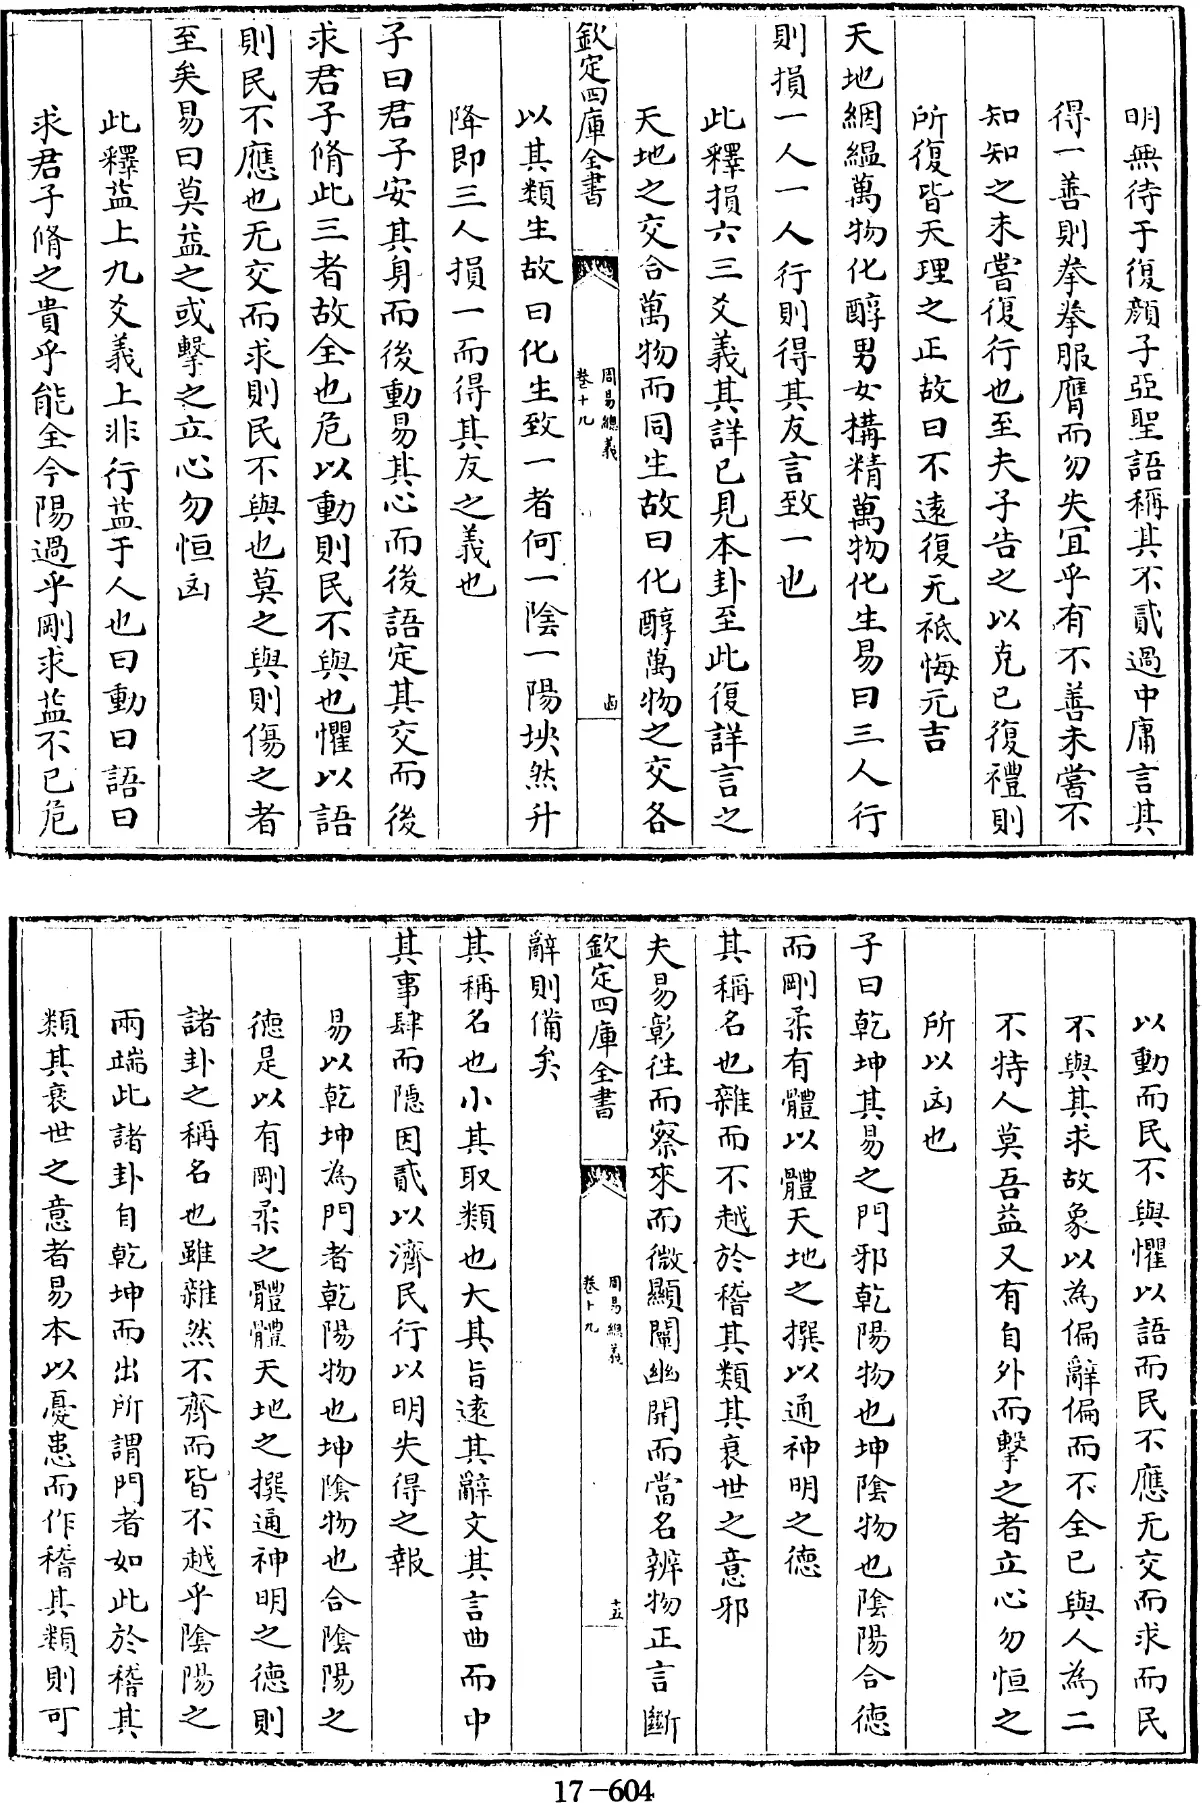 明無待于復顔子亞聖語稱其不貳過中庸言其
得一善則拳拳服膺而勿失宜乎有不善未嘗不
知知之未嘗復行也至夫子告之以克己復禮則
所復皆天理之正故曰不遠復无祗悔元吉
天地絪縕萬物化醇男女構精萬物化生易曰三人行
則損一人一人行則得其友言致一也
此釋損六三爻義其詳已見本卦至此復詳言之
天地之交合萬物而同生故曰化醇萬物之交各
欽定四庫全書
周易總義
卷十九
十四
以其類生故曰化生致一者何一陰一陽坱然升
降即三人損一而得其友之義也
子曰君子安其身而後動易其心而後語定其交而後
求君子脩此三者故全也危以動則民不與也懼以語
則民不應也无交而求則民不與也莫之與則傷之者
至矣易曰莫益之或擊之立心勿恒凶
此釋益上九爻義上非行益于人也曰動曰語曰
求君子脩之貴乎能全今陽過乎剛求益不已危
以動而民不與懼以語而民不應无交而求而民
不與其求故象以為偏辭偏而不全已與人為二
不特人莫吾益又有自外而擊之者立心勿恒之
所以凶也
子曰乾坤其易之門邪乾陽物也坤陰物也陰陽合德
而剛柔有體以體天地之撰以通神明之德
其稱名也雜而不越於稽其類其衰世之意邪
夫易彰往而察來而微顯闡幽開而當名辨物正言斷
欽定四庫全書
周易總義
卷十九
十五
辭則備矣
其稱名也小其取類也大其旨遠其辭文其言曲而中
其事肆而隱因貳以濟民行以明失得之報
易以乾坤為門者乾陽物也坤陰物也合陰陽之
德是以有剛柔之體體天地之撰通神明之德則
諸卦之稱名也雖雜然不齊而皆不越乎陰陽之
兩端此諸卦自乾坤而出所謂門者如此於稽其
類其衰世之意者易本以憂患而作稽其類則可
17-604